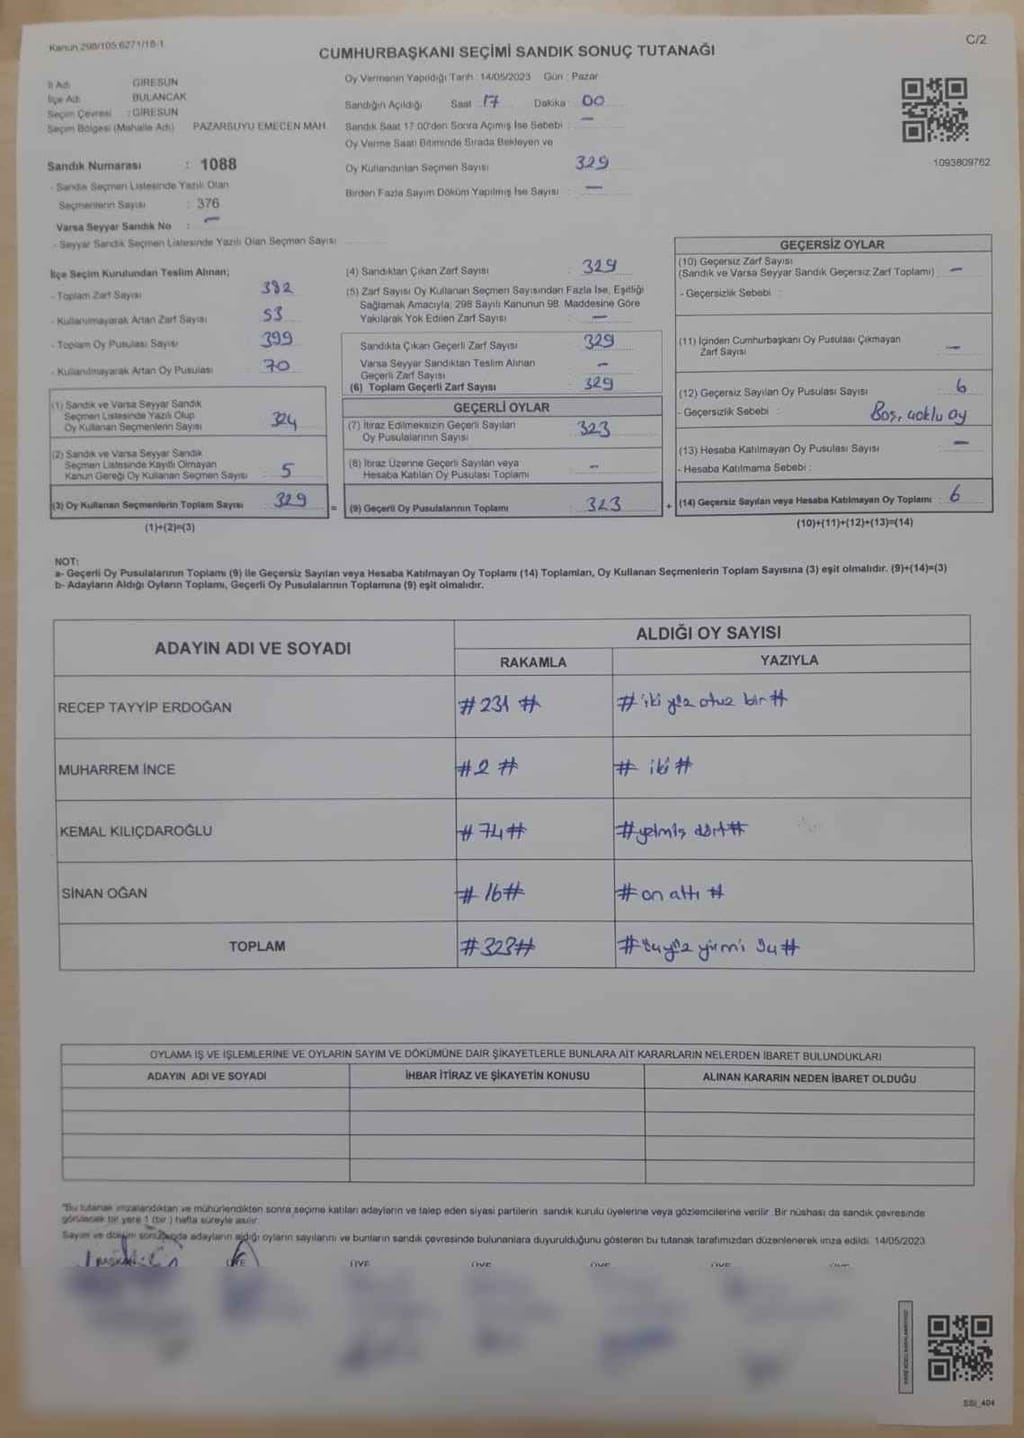 Kanun 298/105 6271/18-1
C/2
CUMHURBAŞKANI SEÇİMİ SANDIK SONUÇ TUTANAĞI
İl Adı : GİRESUN
İlçe Adı : BULANCAK
Seçim Çevresi : GİRESUN
Seçim Bölgesi (Mahalle Adı) PAZARSUYU EMECEN MAH.
Sandık Numarası : 1088
- Sandık Seçmen Listesinde Yazılı Olan
Seçmenlerin Sayısı : 376
Varsa Seyyar Sandık No : -
- Seyyar Sandık Seçmen Listesinde Yazılı Olan Seçmen Sayısı
Oy Vermenin Yapıldığı Tarih : 14/05/2023 Gün : Pazar
Sandığın Açıldığı Saat : 17 Dakika : 00
Sandık Saat 17.00'den Sonra Açılmış İse Sebebi : -
Oy Verme Saati Bitiminde Sırada Bekleyen ve
Oy Kullandırılan Seçmen Sayısı 329
Birden Fazla Sayım Döküm Yapılmış İse Sayısı : -
1093809762
İlçe Seçim Kurulundan Teslim Alınan;
- Toplam Zarf Sayısı 382
- Kullanılmayarak Artan Zarf Sayısı 53
- Toplam Oy Pusulası Sayısı 399
- Kullanılmayarak Artan Oy Pusulası 70
(1) Sandık ve Varsa Seyyar Sandık
Seçmen Listesinde Yazılı Olup
Oy Kullanan Seçmenlerin Sayısı 324
(2) Sandık ve Varsa Seyyar Sandık
Seçmen Listesinde Kayıtlı Olmayan
Kanun Gereği Oy Kullanan Seçmen Sayısı 5
(3) Oy Kullanan Seçmenlerin Toplam Sayısı 329
(1)+(2)=(3)
=
(4) Sandıktan Çıkan Zarf Sayısı : 329
(5) Zarf Sayısı Oy Kullanan Seçmen Sayısından Fazla İse, Eşitliği
Sağlamak Amacıyla; 298 Sayılı Kanunun 98. Maddesine Göre
Yakılarak Yok Edilen Zarf Sayısı : -
Sandıkta Çıkan Geçerli Zarf Sayısı 329
Varsa Seyyar Sandıktan Teslim Alınan
Geçerli Zarf Sayısı -
(6) Toplam Geçerli Zarf Sayısı 329
GEÇERLİ OYLAR
(7) İtiraz Edilmeksizin Geçerli Sayılan
Oy Pusulalarının Sayısı 323
(8) İtiraz Üzerine Geçerli Sayılan veya
Hesaba Katılan Oy Pusulası Toplamı -
(9) Geçerli Oy Pusulalarının Toplamı 323
+
GEÇERSİZ OYLAR
(10) Geçersiz Zarf Sayısı
(Sandık ve Varsa Seyyar Sandık Geçersiz Zarf Toplamı) -
- Geçersizlik Sebebi :
(11) İçinden Cumhurbaşkanı Oy Pusulası Çıkmayan
Zarf Sayısı -
(12) Geçersiz Sayılan Oy Pusulası Sayısı 6
- Geçersizlik Sebebi : Boş, çoklu oy
(13) Hesaba Katılmayan Oy Pusulası Sayısı -
- Hesaba Katılmama Sebebi :
(14) Geçersiz Sayılan veya Hesaba Katılmayan Oy Toplamı : 6
(10)+(11)+(12)+(13)=(14)
NOT:
a- Geçerli Oy Pusulalarının Toplamı (9) ile Geçersiz Sayılan veya Hesaba Katılmayan Oy Toplamı (14) Toplamları, Oy Kullanan Seçmenlerin Toplam Sayısına (3) eşit olmalıdır. (9)+(14)=(3)
b- Adayların Aldığı Oyların Toplamı, Geçerli Oy Pusulalarının Toplamına (9) eşit olmalıdır.
ADAYIN ADI VE SOYADI
ALDIĞI OY SAYISI
RAKAMLA YAZIYLA
RECEP TAYYİP ERDOĞAN #231# #iki yüz otuz bir#
MUHARREM İNCE #2# # iki #
KEMAL KILIÇDAROĞLU #74# #yetmiş dört#
SİNAN OĞAN #16# #on altı #
TOPLAM #323# #üçyüz yirmi üç#
OYLAMA İŞ VE İŞLEMLERİNE VE OYLARIN SAYIM VE DÖKÜMÜNE DAİR ŞİKAYETLERLE BUNLARA AİT KARARLARIN NELERDEN İBARET BULUNDUKLARI
ADAYIN ADI VE SOYADI İHBAR İTİRAZ VE ŞİKAYETİN KONUSU ALINAN KARARIN NEDEN İBARET OLDUĞU
"Bu tutanak imzalandıktan ve mühürlendikten sonra seçime katılan adayların ve talep eden siyasi partilerin sandık kurulu üyelerine veya gözlemcilerine verilir. Bir nüshası da sandık çevresinde
görülecek bir yere 1 (bir ) hafta süreyle asılır.
Sayım ve döküm sonucunda adayların aldığı oyların sayılarını ve bunların sandık çevresinde bulunanlara duyurulduğunu gösteren bu tutanak tarafımızdan düzenlenerek imza edildi. 14/05/2023
ÜYE ÜYE ÜYE ÜYE
SSİ_404